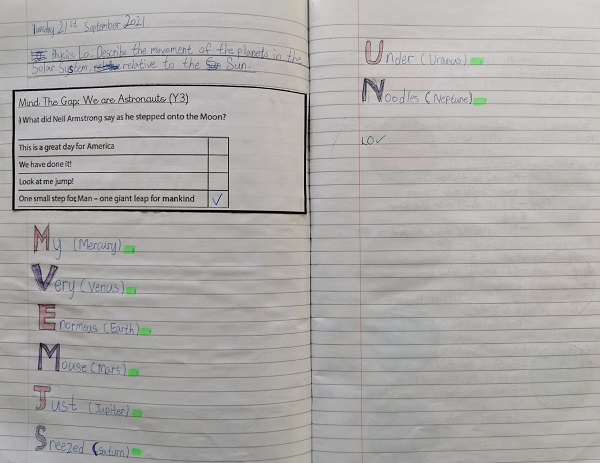 Tuesday 21st September 2021
Physic Lo- Describe the movement of the planets in the
Solar System relative to the Sun.
Mind The Gap: We are Astronauts (Y3)
) What did Neil Armstrong say as he stepped onto the Moon?
This is a great day for America
We have done it!
Look at me jump!
One small step for Man – one giant leap for mankind ✓
My (Mercury)
Very (Venus)
Enormous (Earth)
Mouse (Mars)
Just (Jupiter)
Sneezed (Saturn)
Under (Uranus)
Noodles (Neptune)
LO✓